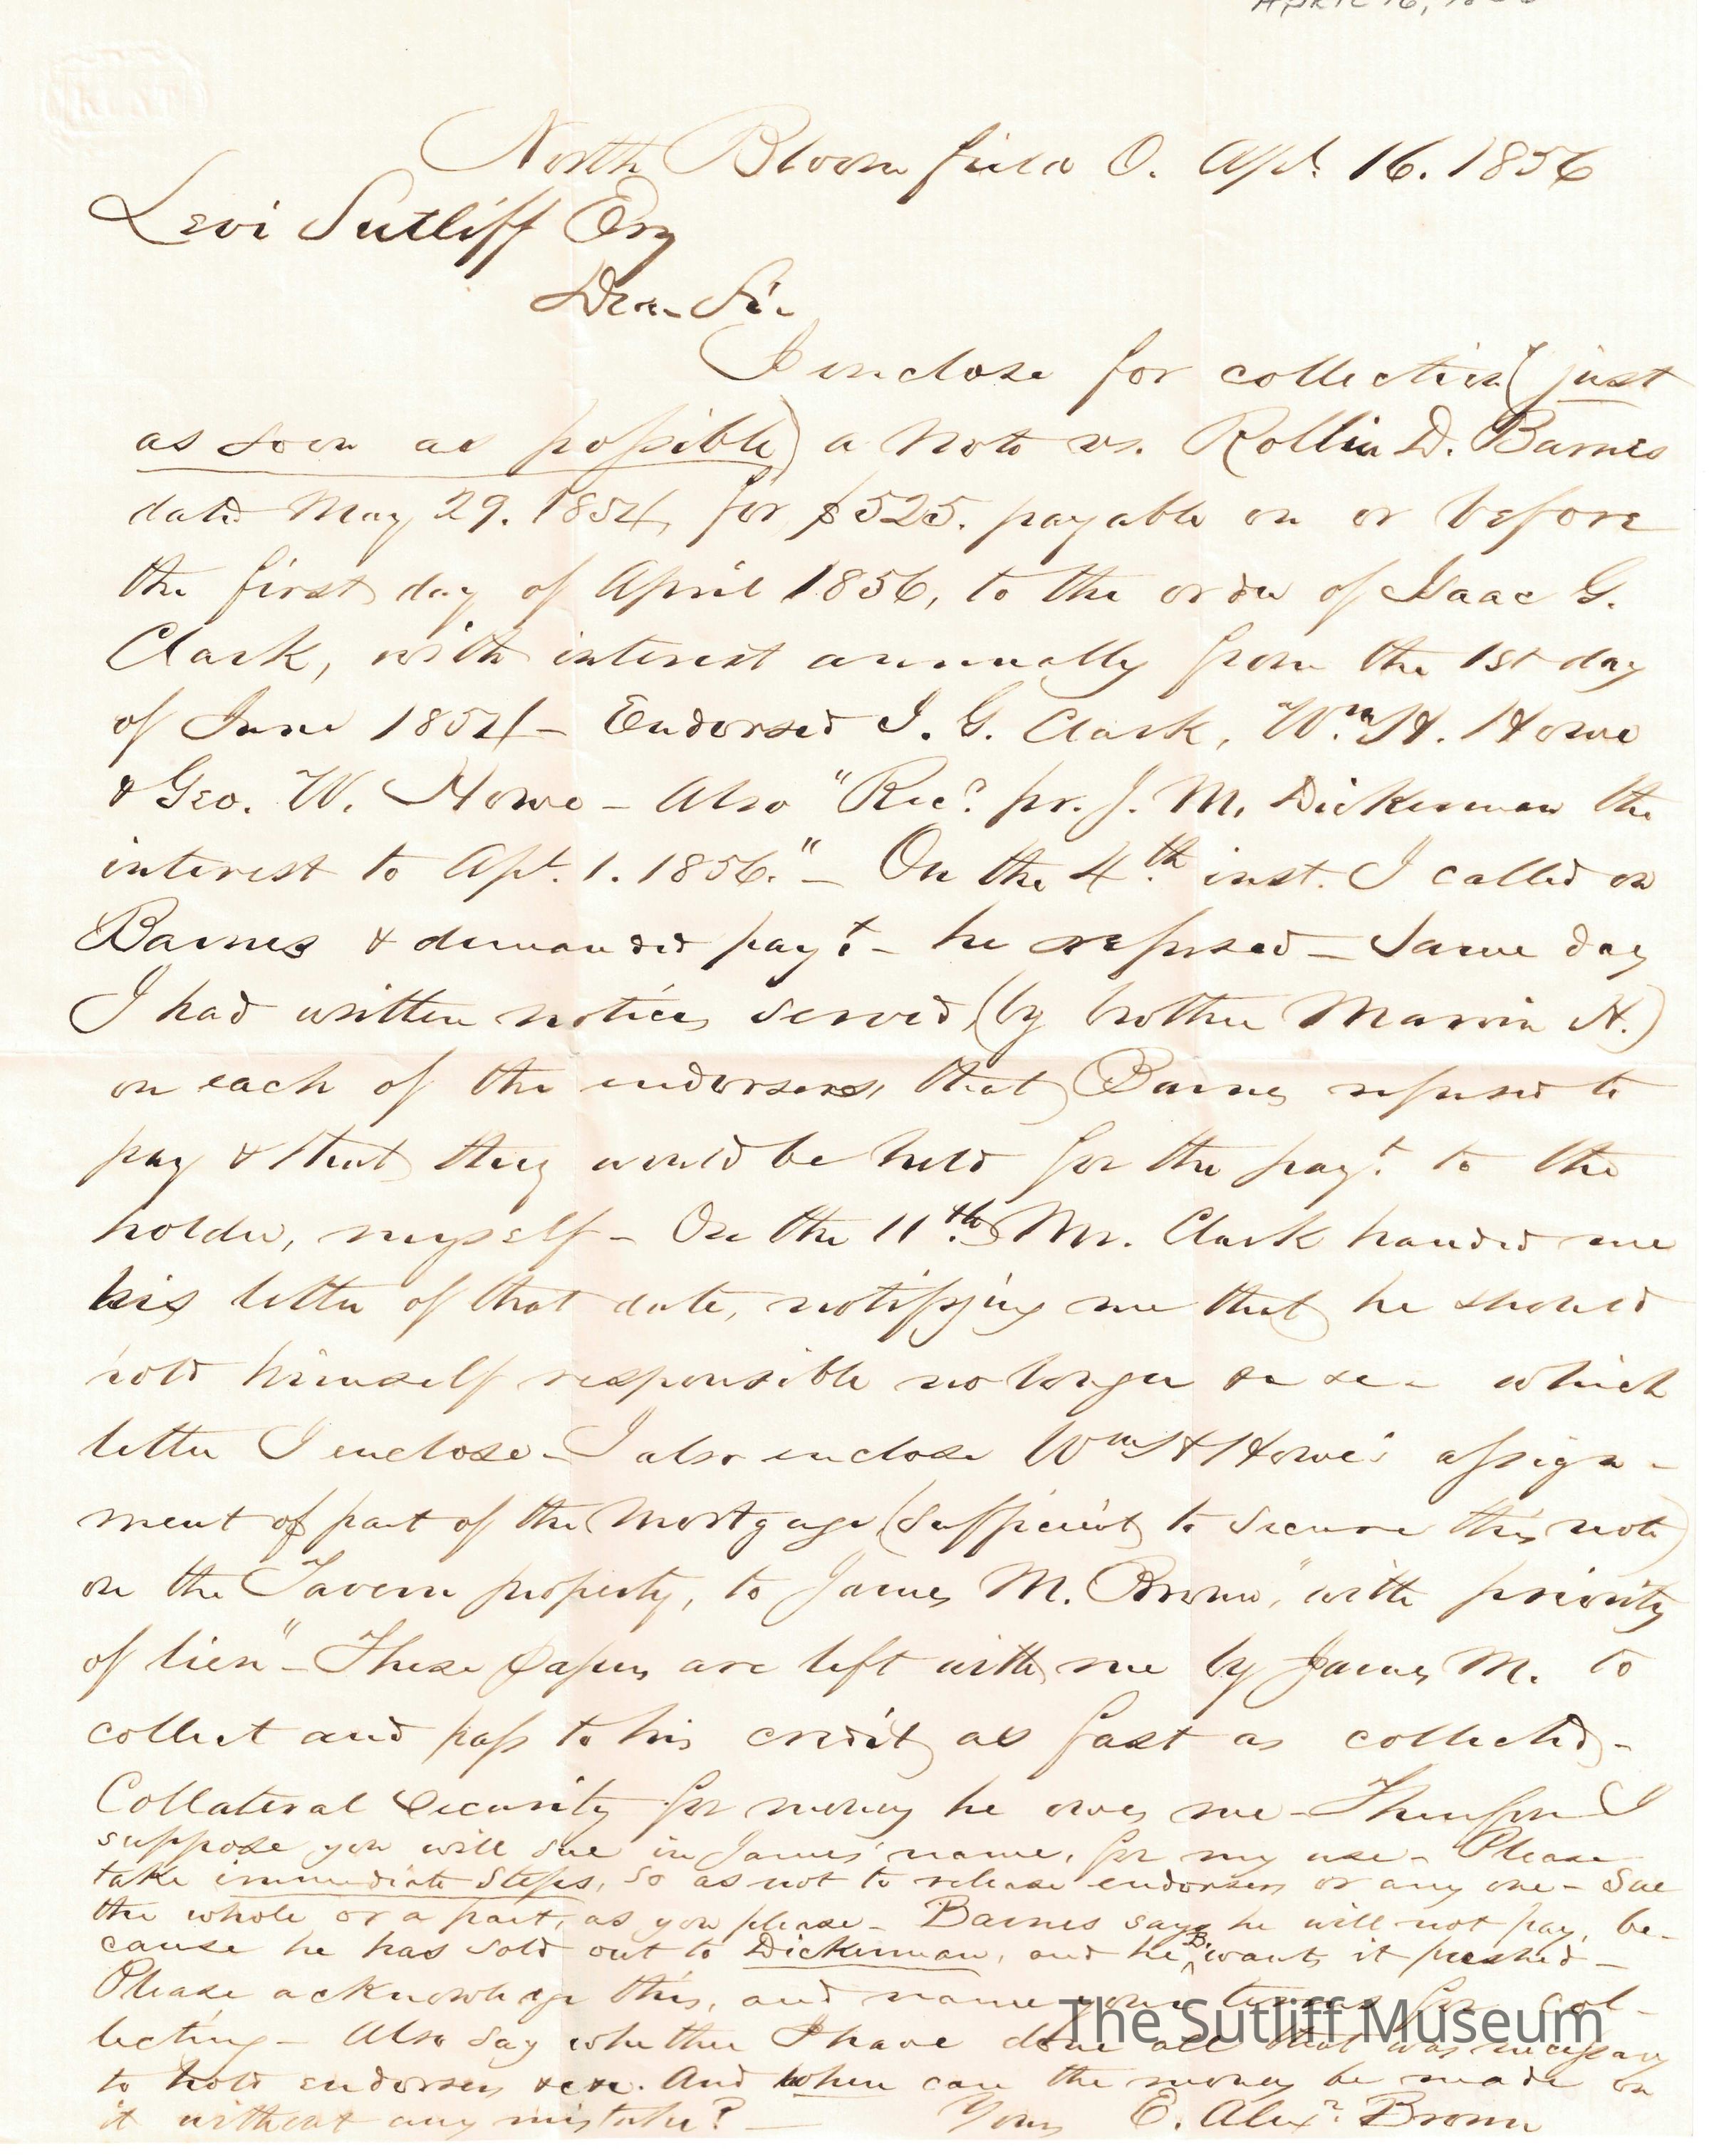 April 16, 18
KENT
North Bloomfield O. Apl. 16. 1856
Levi Sutliff Esq
Dear Sir.
I enclose for collection (just
as soon as possible) a note vs. Rollin D. Barnes
dated May 29. 1854, for $525. payable on or before
the first day of April 1856, to the order of Isaac G.
Clark, with interest annually from the 1st day
of June 1854 - Endorsed I. G. Clark, Wm. H. Howe
& Geo. W. Howe - Also "Recd. pr. J. M. Dickerman the
interest to Apl. 1. 1856." - On the 4th. inst. I called on
Barnes & demanded payt. - he refused - Same day
I had written notices served (by brother Marvin H.)
on each of the endorsers, that Barnes refused to
pay & that they would be held for the payt. to the
holder, myself - On the 11th. Mr. Clark handed me
his letter of that date, notifying me that he should
hold himself responsible no longer &c &c - which
letter I enclose - I also enclose Wm H Howe's assign-
ment of part of the Mortgage (sufficient to secure this note)
on the Tavern property, to James M. Brown, "with priority
of lien" - These papers are left with me by James M. to
collect and pass to his credit as fast as collected -
Collateral Security for money he owes me - Therefore I
suppose you will sue in James' name, for my use - Please
take immediate steps, so as not to release endorsers or any one - Sue
the whole or a part, as you please - Barnes says he will not pay, be-
cause he has sold out to Dickerman, and he B. wants it pushed -
Please acknowledge this, and name your terms for col-
lecting - Also say whether I have done all that was necessary
to hold endorsers &c &c. And when can the money be made on
it without any mistake? -
Yours E. Alexr. Brown
The Sutliff Museum